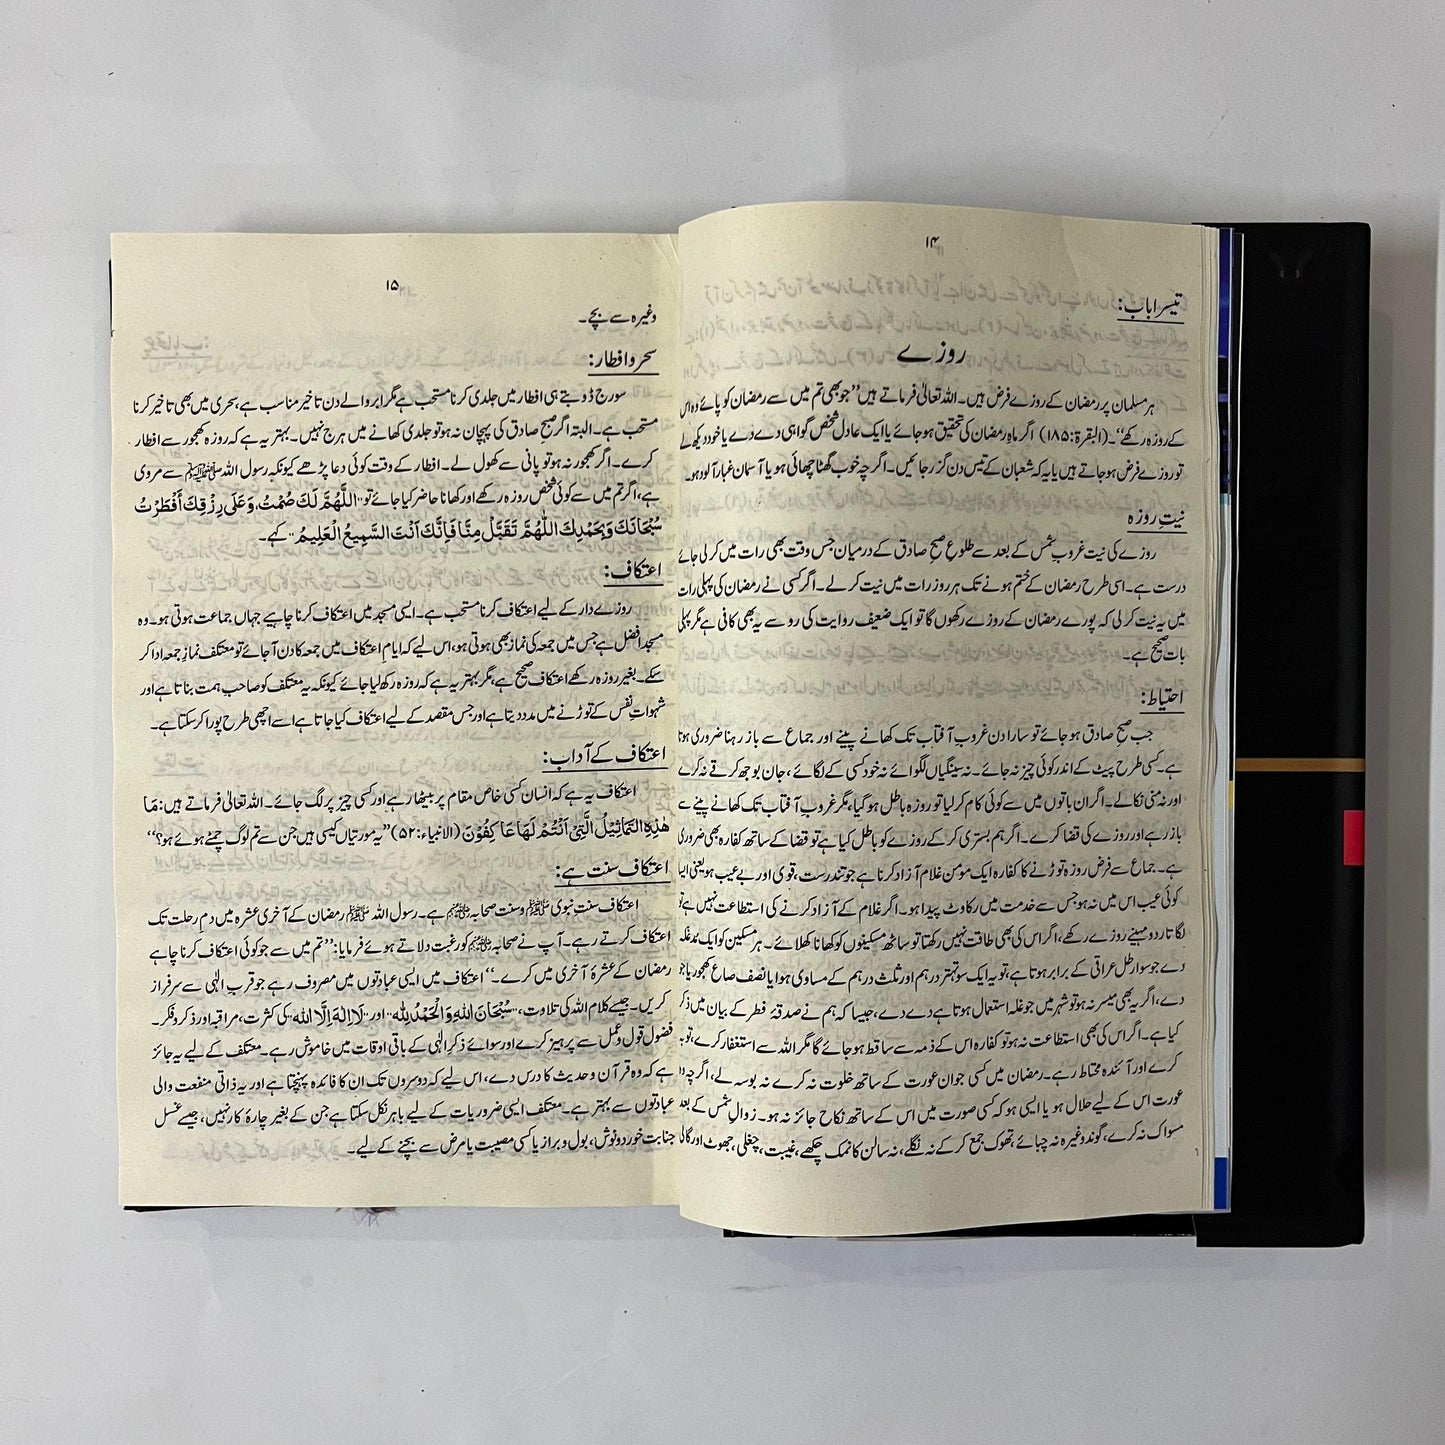 ۱۴
تیسرا باب:
روزے
ہر مسلمان پر رمضان کے روزے فرض ہیں۔ اللہ تعالیٰ فرماتے ہیں ”جو بھی تم میں سے رمضان کو پائے وہ اس
کے روزہ رکھے“۔ (البقرۃ:۱۸۵) اگر ماہِ رمضان کی تحقیق ہو جائے یا ایک عادل شخص گواہی دے دے یا خود دیکھ لے
تو روزے فرض ہو جاتے ہیں یا یہ کہ شعبان کے تیس دن گزر جائیں۔ اگرچہ خوب گھٹا چھائی ہو یا آسمان غبار آلود ہو۔
نیتِ روزہ
روزے کی نیت غروب شمس کے بعد سے طلوع صبح صادق کے درمیان جس وقت بھی رات میں کر لی جائے
درست ہے۔ اسی طرح رمضان کے ختم ہونے تک ہر روز رات میں نیت کر لے۔ اگر کسی نے رمضان کی پہلی رات
میں یہ نیت کر لی کہ پورے رمضان کے روزے رکھوں گا تو ایک ضعیف روایت کی رو سے یہ بھی کافی ہے مگر پہلی
بات صحیح ہے۔
احتیاط:
جب صبح صادق ہو جائے تو سارا دن غروبِ آفتاب تک کھانے پینے اور جماع سے باز رہنا ضروری ہوتا
ہے۔ کسی طرح پیٹ کے اندر کوئی چیز نہ جائے۔ نہ سینگیاں لگوائے نہ خود کسی کے لگائے، جان بوجھ کر قے نہ کرے
اور نہ منی نکالے۔ اگر ان باتوں میں سے کوئی کام کر لیا تو روزہ باطل ہو گیا، مگر غروبِ آفتاب تک کھانے پینے سے
باز رہے اور روزے کی قضا کرے۔ اگر ہم بستری کر کے روزے کو باطل کیا ہے تو قضا کے ساتھ کفارہ بھی ضروری
ہے۔ جماع سے فرض روزہ توڑنے کا کفارہ ایک مومن غلام آزاد کرنا ہے جو تندرست، قوی اور بے عیب ہو یعنی ایسا
کوئی عیب اس میں نہ ہو جس سے خدمت میں رکاوٹ پیدا ہو۔ اگر غلام کے آزاد کرنے کی استطاعت نہیں ہے تو
لگاتار دو مہینے روزے رکھے، اگر اس کی بھی طاقت نہیں رکھتا تو ساٹھ مسکینوں کو کھانا کھلائے۔ ہر مسکین کو ایک مُد غلہ
دے جو سوا رطل عراقی کے برابر ہوتا ہے، تو یہ ایک سو تہتر درہم اور ثلث درہم کے مساوی ہوا یا نصف صاع کھجور یا جو
دے، اگر یہ بھی میسر نہ ہو تو شہر میں جو غلہ استعمال ہوتا ہے دے دے، جیسا کہ ہم نے صدقہ فطر کے بیان میں ذکر
کیا ہے۔ اگر اس کی بھی استطاعت نہ ہو تو کفارہ اس کے ذمہ سے ساقط ہو جائے گا مگر اللہ سے استغفار کرے، توبہ
کرے اور آئندہ محتاط رہے۔ رمضان میں کسی جوان عورت کے ساتھ خلوت نہ کرے نہ بوسہ لے، اگرچہ وہ
عورت اس کے لیے حلال ہو یا ایسی ہو کہ کسی صورت میں اس کے ساتھ نکاح جائز نہ ہو۔ زوال شمس کے بعد
مسواک نہ کرے، گوند وغیرہ نہ چبائے، تھوک جمع کر کے نہ نگلے، نہ سالن کا نمک چکھے، غیبت، چغلی، جھوٹ اور گالی
۱۵
وغیرہ سے بچے۔
سحر و افطار:
سورج ڈوبتے ہی افطار میں جلدی کرنا مستحب ہے مگر ابر والے دن تاخیر مناسب ہے، سحری میں بھی تاخیر کرنا
مستحب ہے۔ البتہ اگر صبح صادق کی پہچان نہ ہو تو جلدی کھانے میں ہرج نہیں۔ بہتر یہ ہے کہ روزہ کھجور سے افطار
کرے۔ اگر کھجور نہ ہو تو پانی سے کھول لے۔ افطار کے وقت کوئی دعا پڑھے کیونکہ رسول اللہ ﷺ سے مروی
ہے، اگر تم میں سے کوئی شخص روزہ رکھے اور کھانا حاضر کیا جائے تو ”اللّٰهُمَّ لَكَ صُمْتُ، وَعَلٰى رِزْقِكَ أَفْطَرْتُ
سُبْحَانَكَ وَبِحَمْدِكَ اللّٰهُمَّ تَقَبَّلْ مِنَّا فَإِنَّكَ اَنْتَ السَّمِيعُ الْعَلِيمُ“ کہے۔
اعتکاف:
روزے دار کے لیے اعتکاف کرنا مستحب ہے۔ ایسی مسجد میں اعتکاف کرنا چاہیے جہاں جماعت ہوتی ہو۔ وہ
مسجد افضل ہے جس میں جمعہ کی نماز بھی ہوتی ہو، اس لیے کہ ایامِ اعتکاف میں جمعہ کا دن آ جائے تو معتکف نمازِ جمعہ ادا کر
سکے۔ بغیر روزہ رکھے اعتکاف صحیح ہے، مگر بہتر یہ ہے کہ روزہ رکھ لیا جائے کیونکہ یہ معتکف کو صاحب ہمت بناتا ہے اور
شہواتِ نفس کے توڑنے میں مدد دیتا ہے اور جس مقصد کے لیے اعتکاف کیا جاتا ہے اسے اچھی طرح پورا کر سکتا ہے۔
اعتکاف کے آداب:
اعتکاف یہ ہے کہ انسان کسی خاص مقام پر بیٹھا رہے اور کسی چیز پر لگ جائے۔ اللہ تعالیٰ فرماتے ہیں: مَا
هٰذِهِ التَّمَاثِيْلُ الَّتِيْ اَنْتُمْ لَهَا عَاكِفُوْنَ (الانبیاء:۵۲) ”یہ مورتیاں کیسی ہیں جن سے تم لوگ چمٹے ہوئے ہو؟“
اعتکاف سنت ہے:
اعتکاف سنتِ نبوی ﷺ و سنت صحابہ ہے۔ رسول اللہ ﷺ رمضان کے آخری عشرہ میں دمِ رحلت تک
اعتکاف کرتے رہے۔ آپ نے صحابہ کو رغبت دلاتے ہوئے فرمایا: ”تم میں سے جو کوئی اعتکاف کرنا چاہے
رمضان کے عشرۂ آخری میں کرے۔“ اعتکاف میں ایسی عبادتوں میں مصروف رہے جو قربِ الٰہی سے سرفراز
کریں۔ جیسے کلام اللہ کی تلاوت، ”سُبْحَانَ اللّٰهِ وَالْحَمْدُ لِلّٰهِ“ اور ”لَا اِلٰهَ اِلَّا اللّٰه“ کی کثرت، مراقبہ اور ذکر و فکر۔
فضول قول و عمل سے پرہیز کرے اور سوائے ذکرِ الٰہی کے باقی اوقات میں خاموش رہے۔ معتکف کے لیے یہ جائز
ہے کہ وہ قرآن و حدیث کا درس دے، اس لیے کہ دوسروں تک ان کا فائدہ پہنچتا ہے اور یہ ذاتی منفعت والی
عبادتوں سے بہتر ہے۔ معتکف ایسی ضروریات کے لیے باہر نکل سکتا ہے جن کے بغیر چارۂ کار نہیں، جیسے غسل
جنابت خورد و نوش، بول و براز یا کسی مصیبت یا مرض سے بچنے کے لیے۔